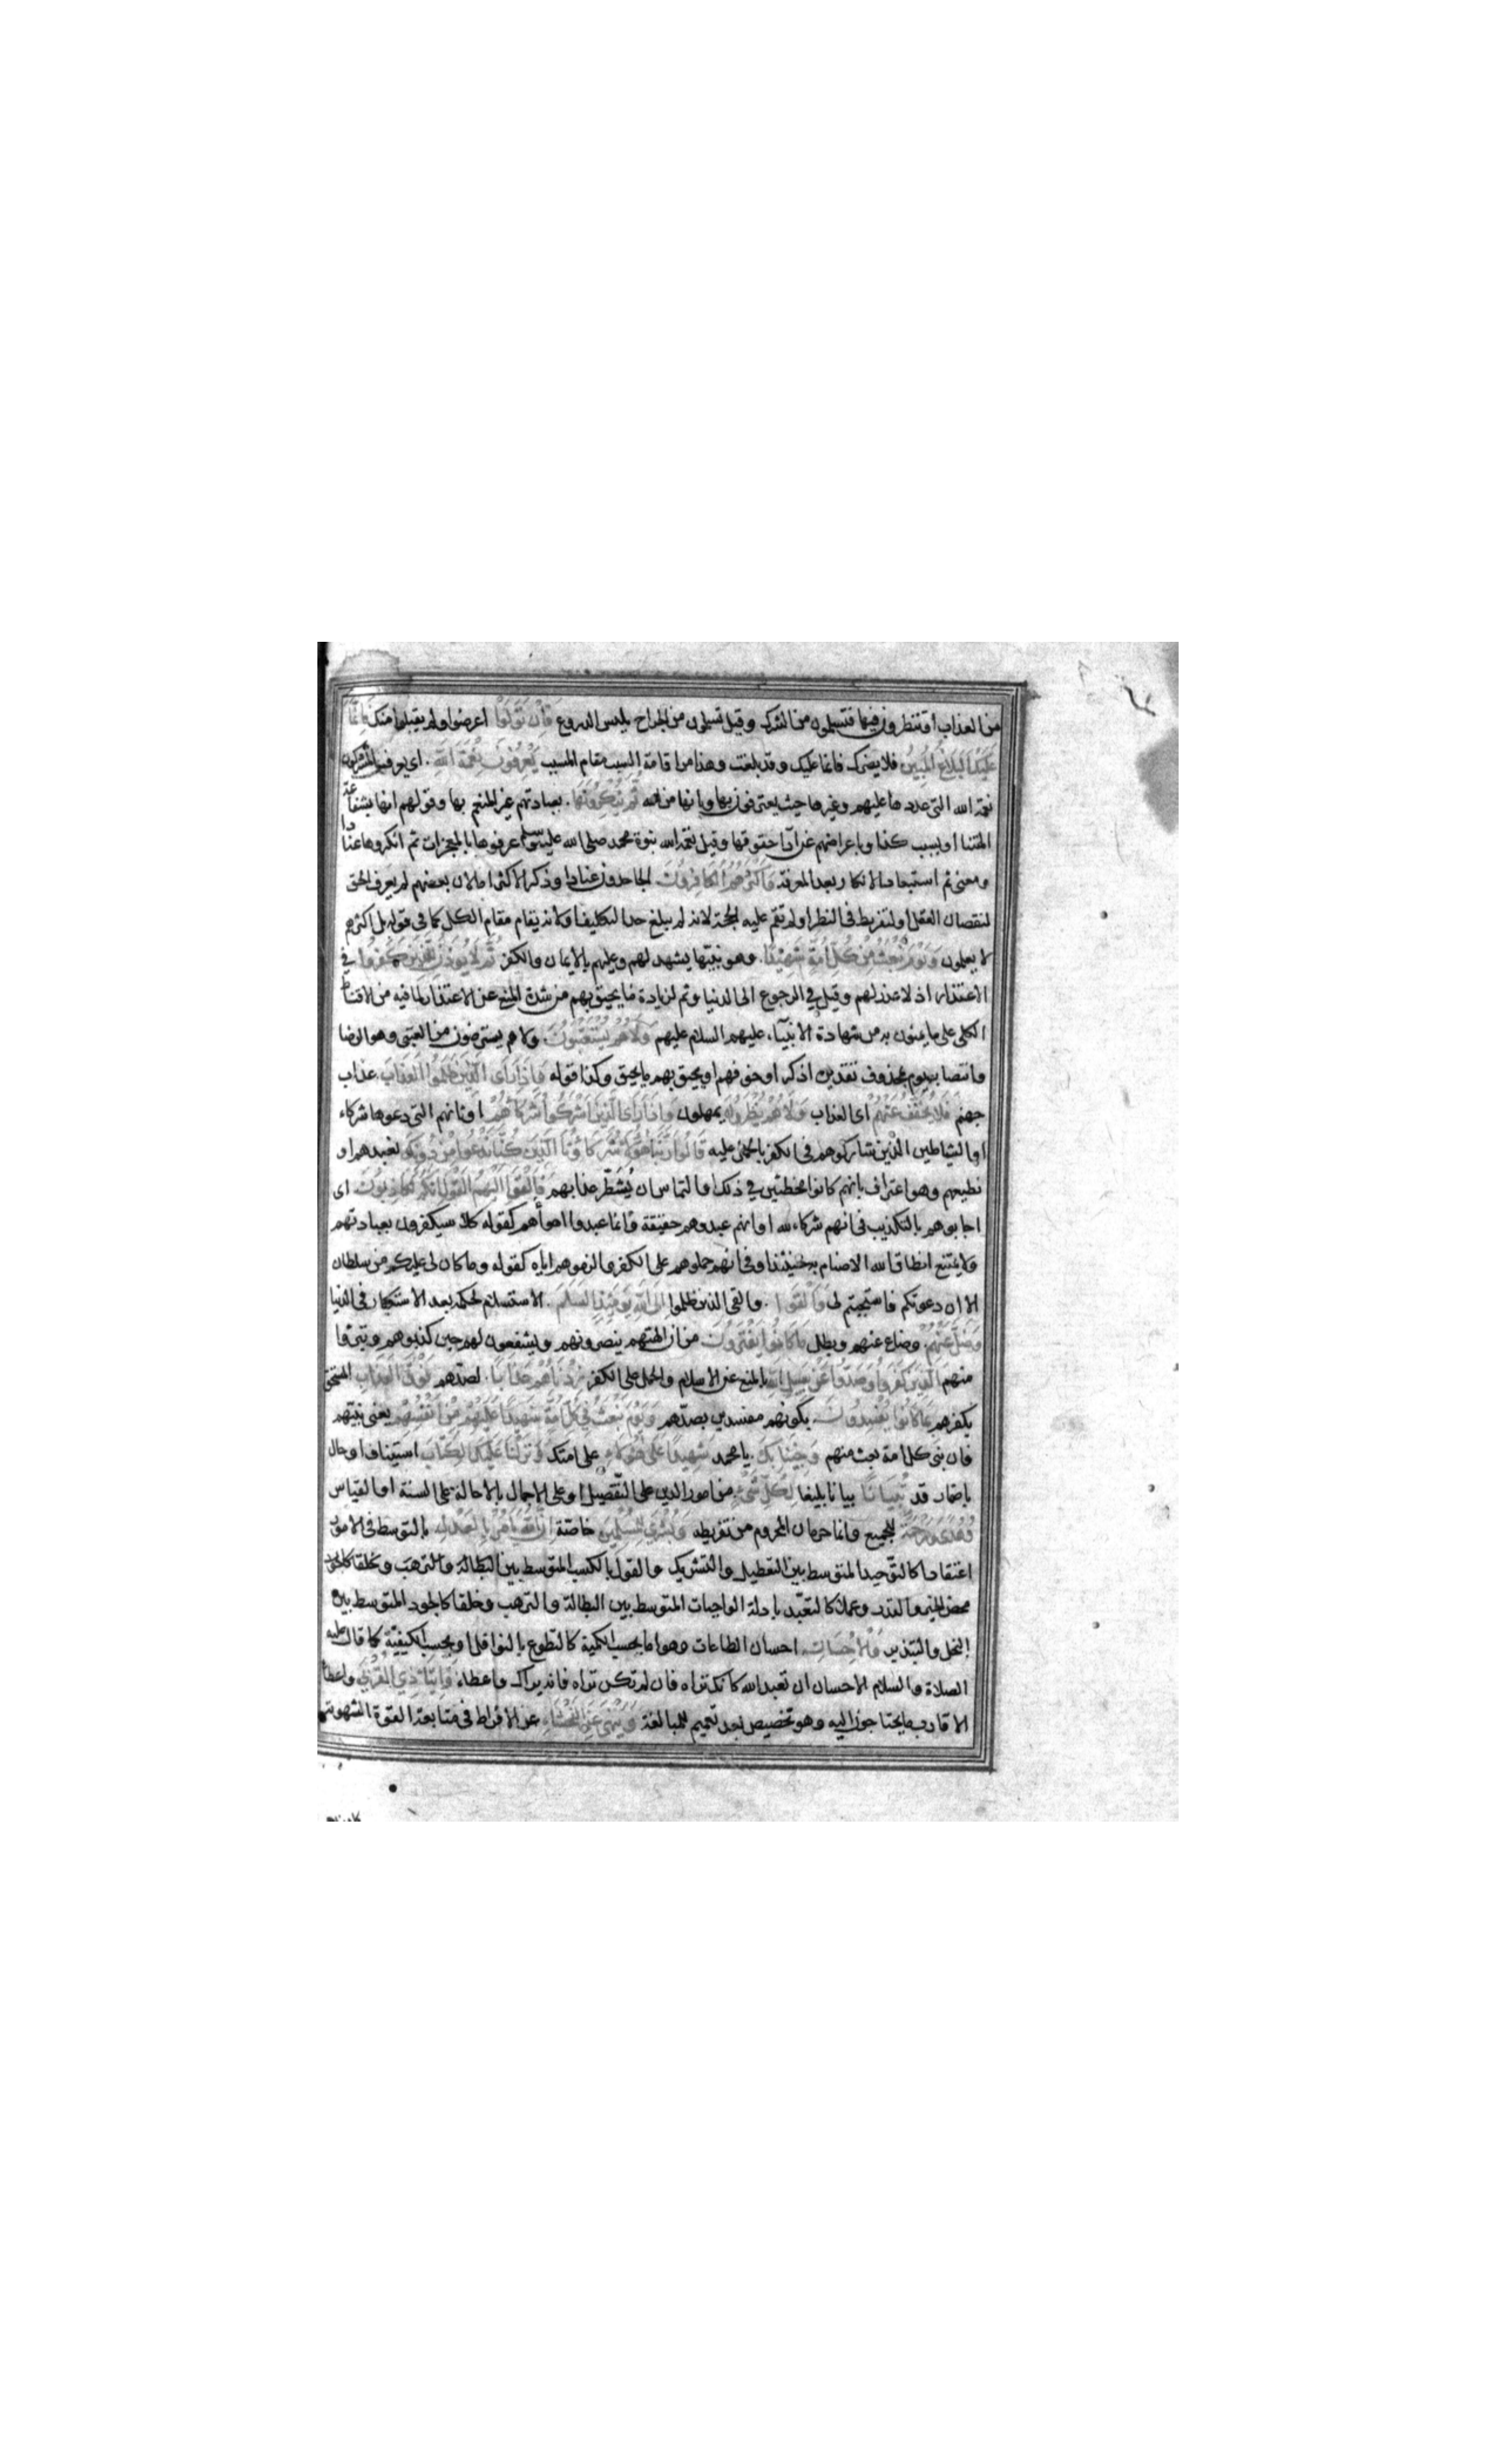 من العذاب او تنظرون فيها فتسلمون من الشرك وقيل تسلمون من الجراح بلبس الدروع فان تولوا اعرضوا ولم يقبلوا منك فانما
عليك البلاغ المبين فلا يضرك فانما عليك وقد بلغت وهذا من اقامة السبب مقام المسبب يعرفون نعمة الله اى يعرف المشركون
نعمة الله التى عددها عليهم وغيرها حيث يعترفون بها وبانها من الله ثم ينكرونها بعبادتهم غير المنعم بها وقولهم انها بشفاعة
الهتنا او بسبب كذا وباعراضهم عن اداء حقوقها وقيل نعمة الله نبوة محمد صلى الله عليه وسلم عرفوها بالمعجزات ثم انكروها عنادا
ومعنى ثم استبعاد الانكار بعد المعرفة واكثرهم الكافرون الجاحدون عنادا وذكر الاكثر اما لان بعضهم لم يعرف الحق
لنقصان العقل او لتفريط فى النظر او لم تقم عليه الحجة لانه لم يبلغ حد التكليف اولانه يقام مقام الكل كما فى قوله بل اكثرهم
لا يعلمون ويوم نبعث من كل امة شهيدا وهو نبيها يشهد لهم وعليهم بالايمان والكفر ثم لا يوذن للذين كفروا فى
الاعتذار اذ لا عذر لهم وقيل فى الرجوع الى الدنيا وثم لزيادة ما يحيق بهم من شدة المنع عن الاعتذار لما فيه من الاقناط
الكلى على ما يمنون به من شهادة الانبياء عليهم السلام عليهم ولا هم يستعتبون ولا هم يسترضون من العتبى وهو الرضا
وانتصاب يوم بمحذوف تقديره اذكر او خوفهم او يحيق بهم ما يحيق وكذا قوله واذا راى الذين ظلموا العذاب عذاب
جهنم فلا يخفف عنهم اى العذاب ولا هم ينظرون يمهلون واذا راى الذين اشركوا شركاءهم اوثانهم التى دعوها شركاء
او الشياطين الذين شاركوهم فى الكفر بالحمل عليه قالوا ربنا هؤلاء شركاؤنا الذين كنا ندعوا من دونك نعبدهم او
نطيعهم وهو اعتراف بانهم كانوا مخطئين فى ذلك او التماس ان يُشطّر عذابهم فالقوا اليهم القول انكم لكاذبون اى
اجابوهم بالتكذيب فى انهم شركاء لله او انهم عبدوهم حقيقة وانما عبدوا اهواءهم كقوله كلا سيكفرون بعبادتهم
ولا يمتنع انطاق الله الاصنام به حينئذ او فى انهم حملوهم على الكفر والزموهم اياه كقوله وما كان لى عليكم من سلطان
الا ان دعوتكم فاستجبتم لى والقوا والقى الذين ظلموا الى الله يومئذ السلم الاستسلام لحكمه بعد الاستكبار فى الدنيا
وضل عنهم وضاع عنهم وبطل ما كانوا يفترون من ان الهتهم ينصرونهم ويشفعون لهم حين كذبوهم وتبرؤا
منهم الذين كفروا وصدوا عن سبيل الله بالمنع عن الاسلام والحمل على الكفر زدناهم عذابا لصدّهم فوق العذاب المستحق
بكفرهم بما كانوا يفسدون بكونهم مفسدين بصدّهم ويوم نبعث فى كل امة شهيدا عليهم من انفسهم يعنى نبيّهم
فان نبى كل امة بعث منهم وجئنا بك يا محمد شهيدا على هؤلاء على امتك ونزلنا عليك الكتاب استيناف او حال
باضمار قد تبيانا بيانا بليغا لكل شىء من امور الدين على التفصيل او على الاجمال بالاحالة على السنة او القياس
وهدى ورحمة للجميع وانما حرمان المحروم من تفريطه وبشرى للمسلمين خاصّة ان الله يامر بالعدل بالتوسط فى الامور
اعتقادا كالتوحيد المتوسط بين التعطيل والتشريك والقول بالكسب المتوسط بين البطالة والترهب وخلقا كالجود
محض الجبر والقدر وعملا كالتعبّد باداة الواجبات المتوسط بين البطالة والترهب وخلقا كالجود المتوسط بين
البخل والتبذير والاحسان احسان الطاعات وهو اما بحسب الكمية كالتطوع بالنوافل او بحسب الكيفيّة كما قال عليه
الصلاة والسلام الاحسان ان تعبد الله كانك تراه فان لم تكن تراه فانه يراك واعطاء وايتاء ذى القربى واعطاء
الاقارب ما يحتاجون اليه وهو تخصيص بعد تعميم للمبالغة وينهى عن الفحشاء عن الافراط فى متابعة القوة الشهوية